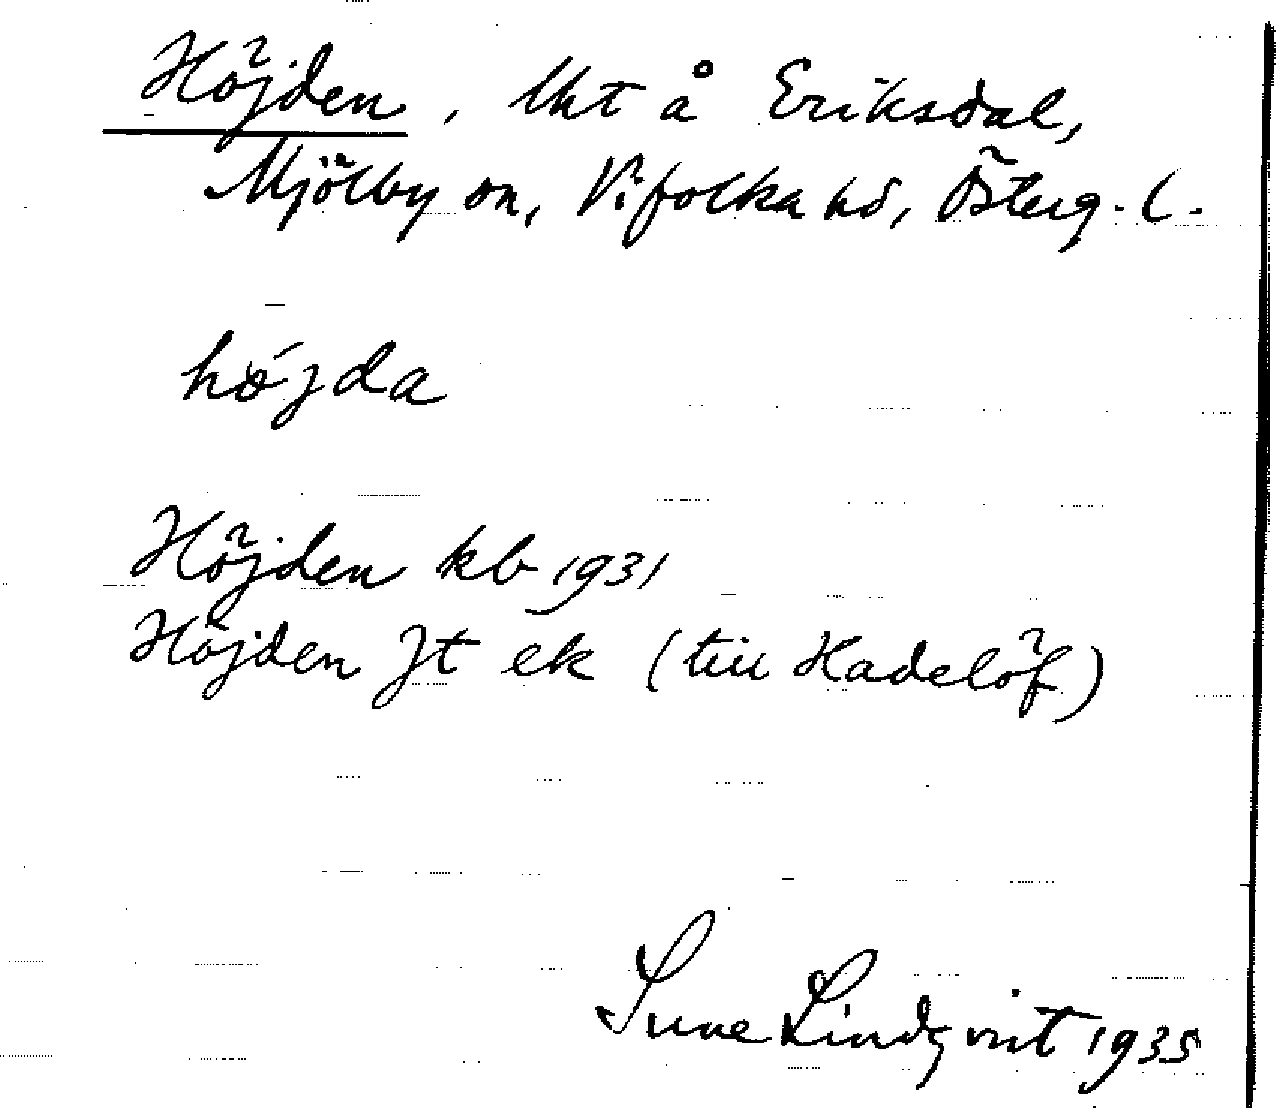 Höjden, lht å Eriksdal,
Mjölby sn, Vifolka hd, Österg. l.
hö́jda
Höjden kb 1931
Höjden Jt ek (till Hadelöf)
Sune Lindqvist 1935